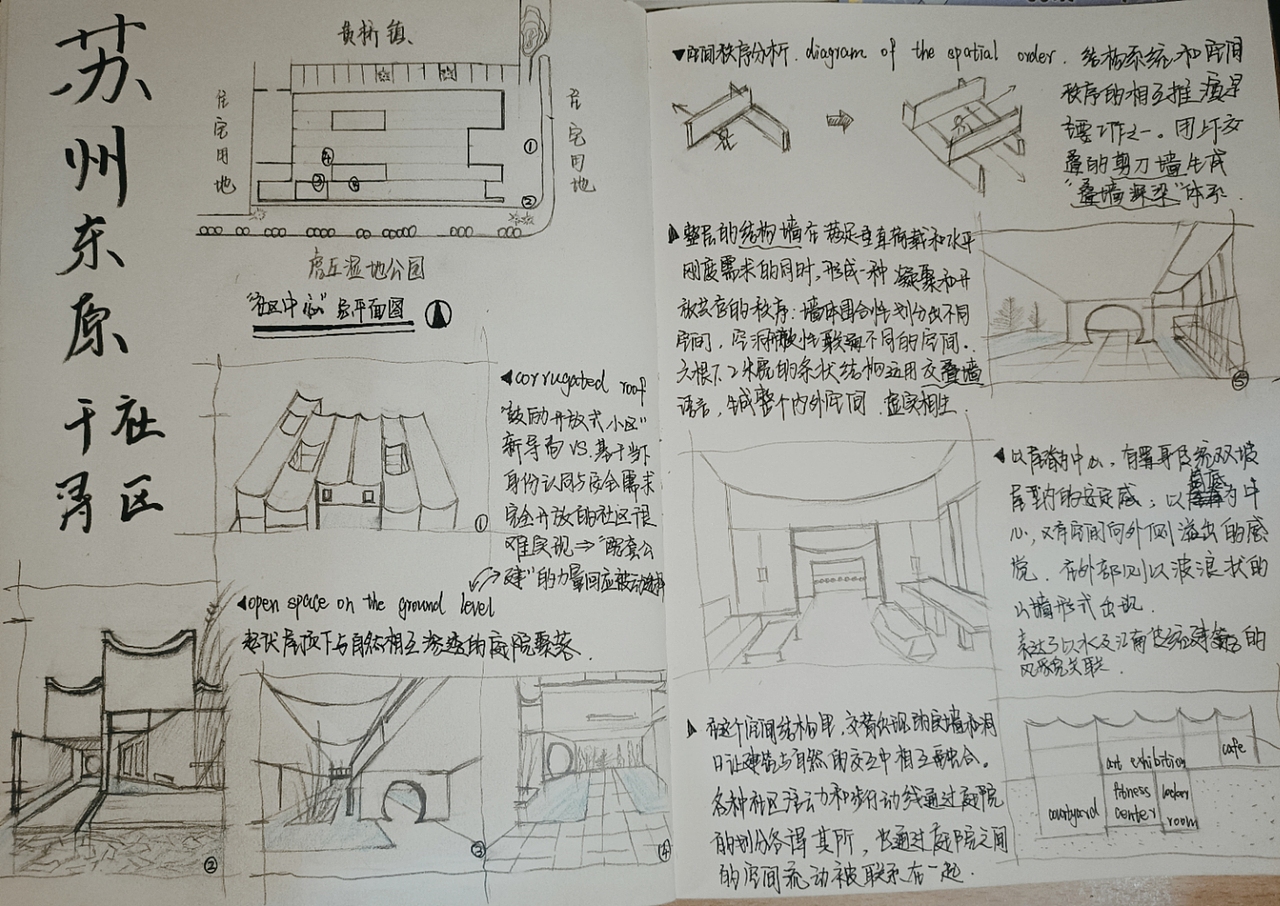 苏州东原千浔社区
黄桥镇
住宅用地
住宅用地
①
②
③
④
⑤
虎丘湿地公园
"社区中心"总平面图
①
◀corrugated roof
"鼓励开放式小区"
新导向VS.基于当下
身份认同与安全需求
完全开放的社区很
难实现⇒"配套公
建"的力量回应被动选择
◀open space on the ground level
起伏屋顶下与自然相互渗透的庭院聚落.
②
③
④
▼空间秩序分析. diagram of the spatial order. 结构系统和空间
秩序的相互推演是
主要工作之一。
交叠的剪刀墙生成
"叠墙深梁"体系.
整层的结构墙在满足垂直荷载和水平
刚度需求的同时,形成一种凝聚和开
放共存的秩序:墙体围合性划分出不同
空间,空洞联通不同的空间.
六根7.2米宽的条状结构运用交叠墙
语言,生成整个内外空间.虚实相生.
⑤
◀以屋脊为中心,有置身传统双坡
屋架内的安定感;以屋底为中
心,又有空间向外侧溢出的感
觉.在外部则以波浪状的
山墙形式出现.
表达了以水及江南传统建筑的
风家完关联.
在这个空间结构里,交替出现的实墙和洞
口让建筑与自然的交互中相互融合。
各种社区活动和步行动线通过庭院
的划分各得其所,也通过庭院之间
的空间流动被联系在一起.
cafe
art exhibition
courtyard
fitness center
locker room